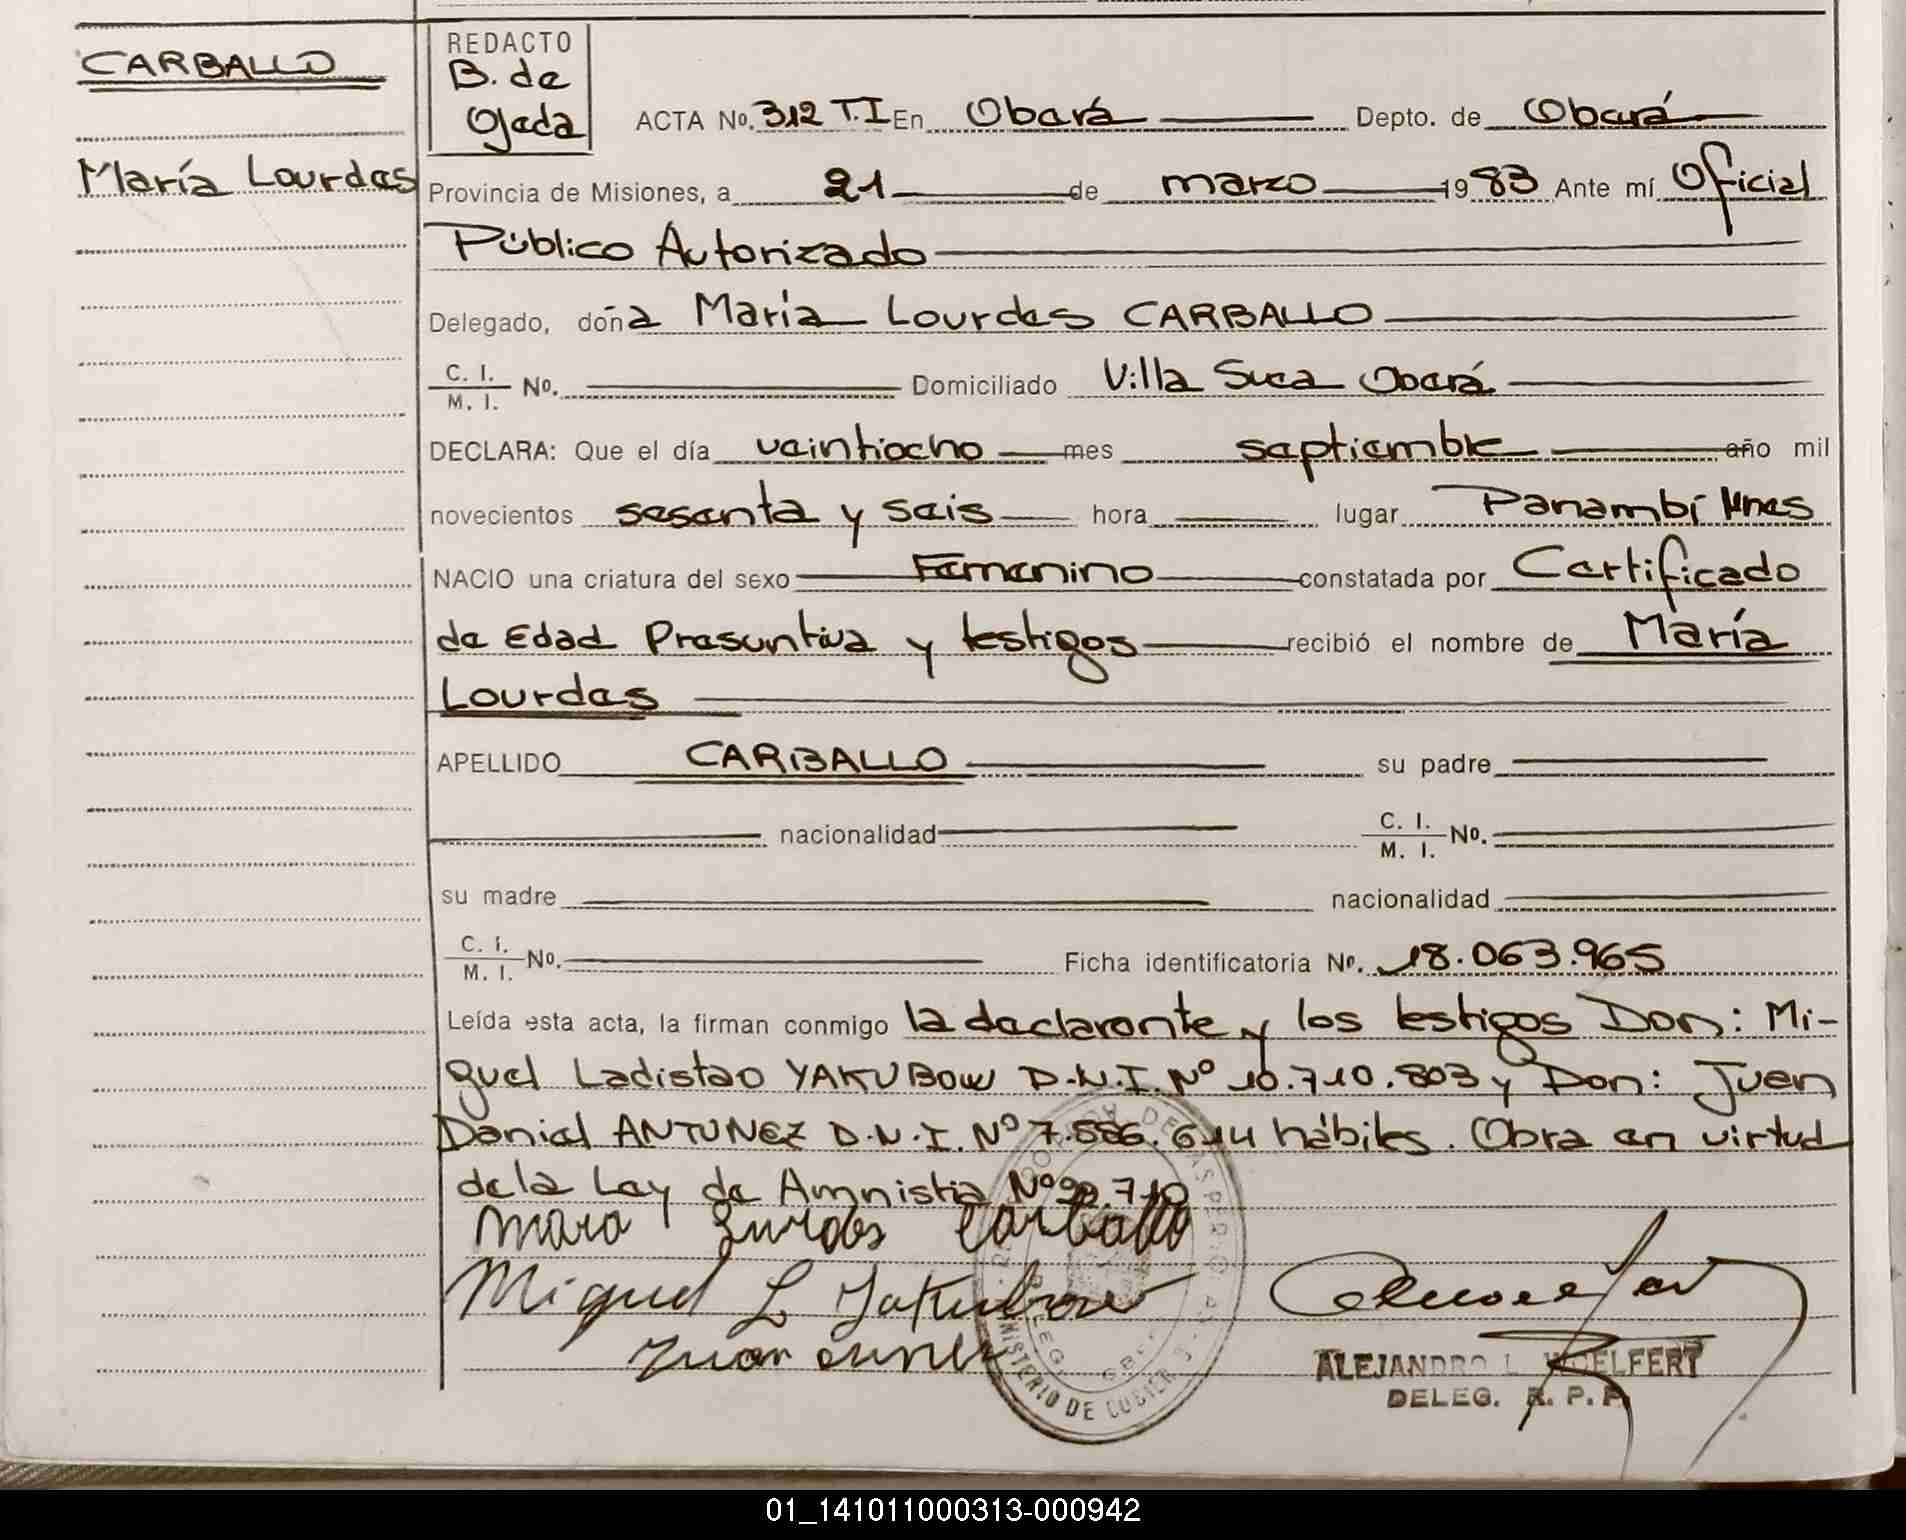 CARBALLO
María Lourdes
REDACTO
B. de
Ojeda
ACTA No. 312 T.I En Oberá Depto. de Oberá
Provincia de Misiones, a 21 de marzo 1983 Ante mí Oficial
Público Autorizado
Delegado, doña María Lourdes CARBALLO
C. I.
M. I. No. Domiciliado Villa Suea Oberá
DECLARA: Que el día veintiocho mes septiembre año mil
novecientos sesenta y seis hora lugar Panambí Mnes
NACIO una criatura del sexo Femenino constatada por Certificado
de Edad Presuntiva y testigos recibió el nombre de María
Lourdes
APELLIDO CARBALLO su padre
nacionalidad C. I.
M. I. No.
su madre nacionalidad
C. I.
M. I. No. Ficha identificatoria No. 18.063.965
Leída esta acta, la firman conmigo la declarante y los testigos Don: Mi-
guel Ladistao YAKUBOW D.N.I. Nº 10.710.803 y Don: Juan
Daniel ANTUNEZ D.N.I. Nº 7.586.614 hábiles. Obra en virtud
de la Ley de Amnistia Nº 22.710
Miguel L Yakubow
Juan
MINISTERIO DE
ALEJANDRO L. WOELFERT
DELEG. R. P. P.
01_141011000313-000942